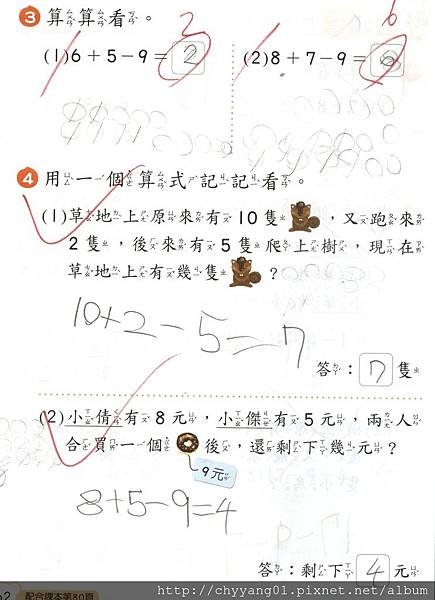 3 算算看。
(1) 6+5-9= 2 3
(2) 8+7-9= 6 6
4 用一個算式記記看。
(1) 草地上原來有10隻,又跑來
2隻,後來有5隻爬上樹,現在
草地上有幾隻?
10+2-5=7
答:7隻
(2) 小倩有8元,小傑有5元,兩人
合買一個後,還剩下幾元?
9元
8+5-9=4
答:剩下4元
配合課本第80頁
http://chyyang01.pixnet.net/album